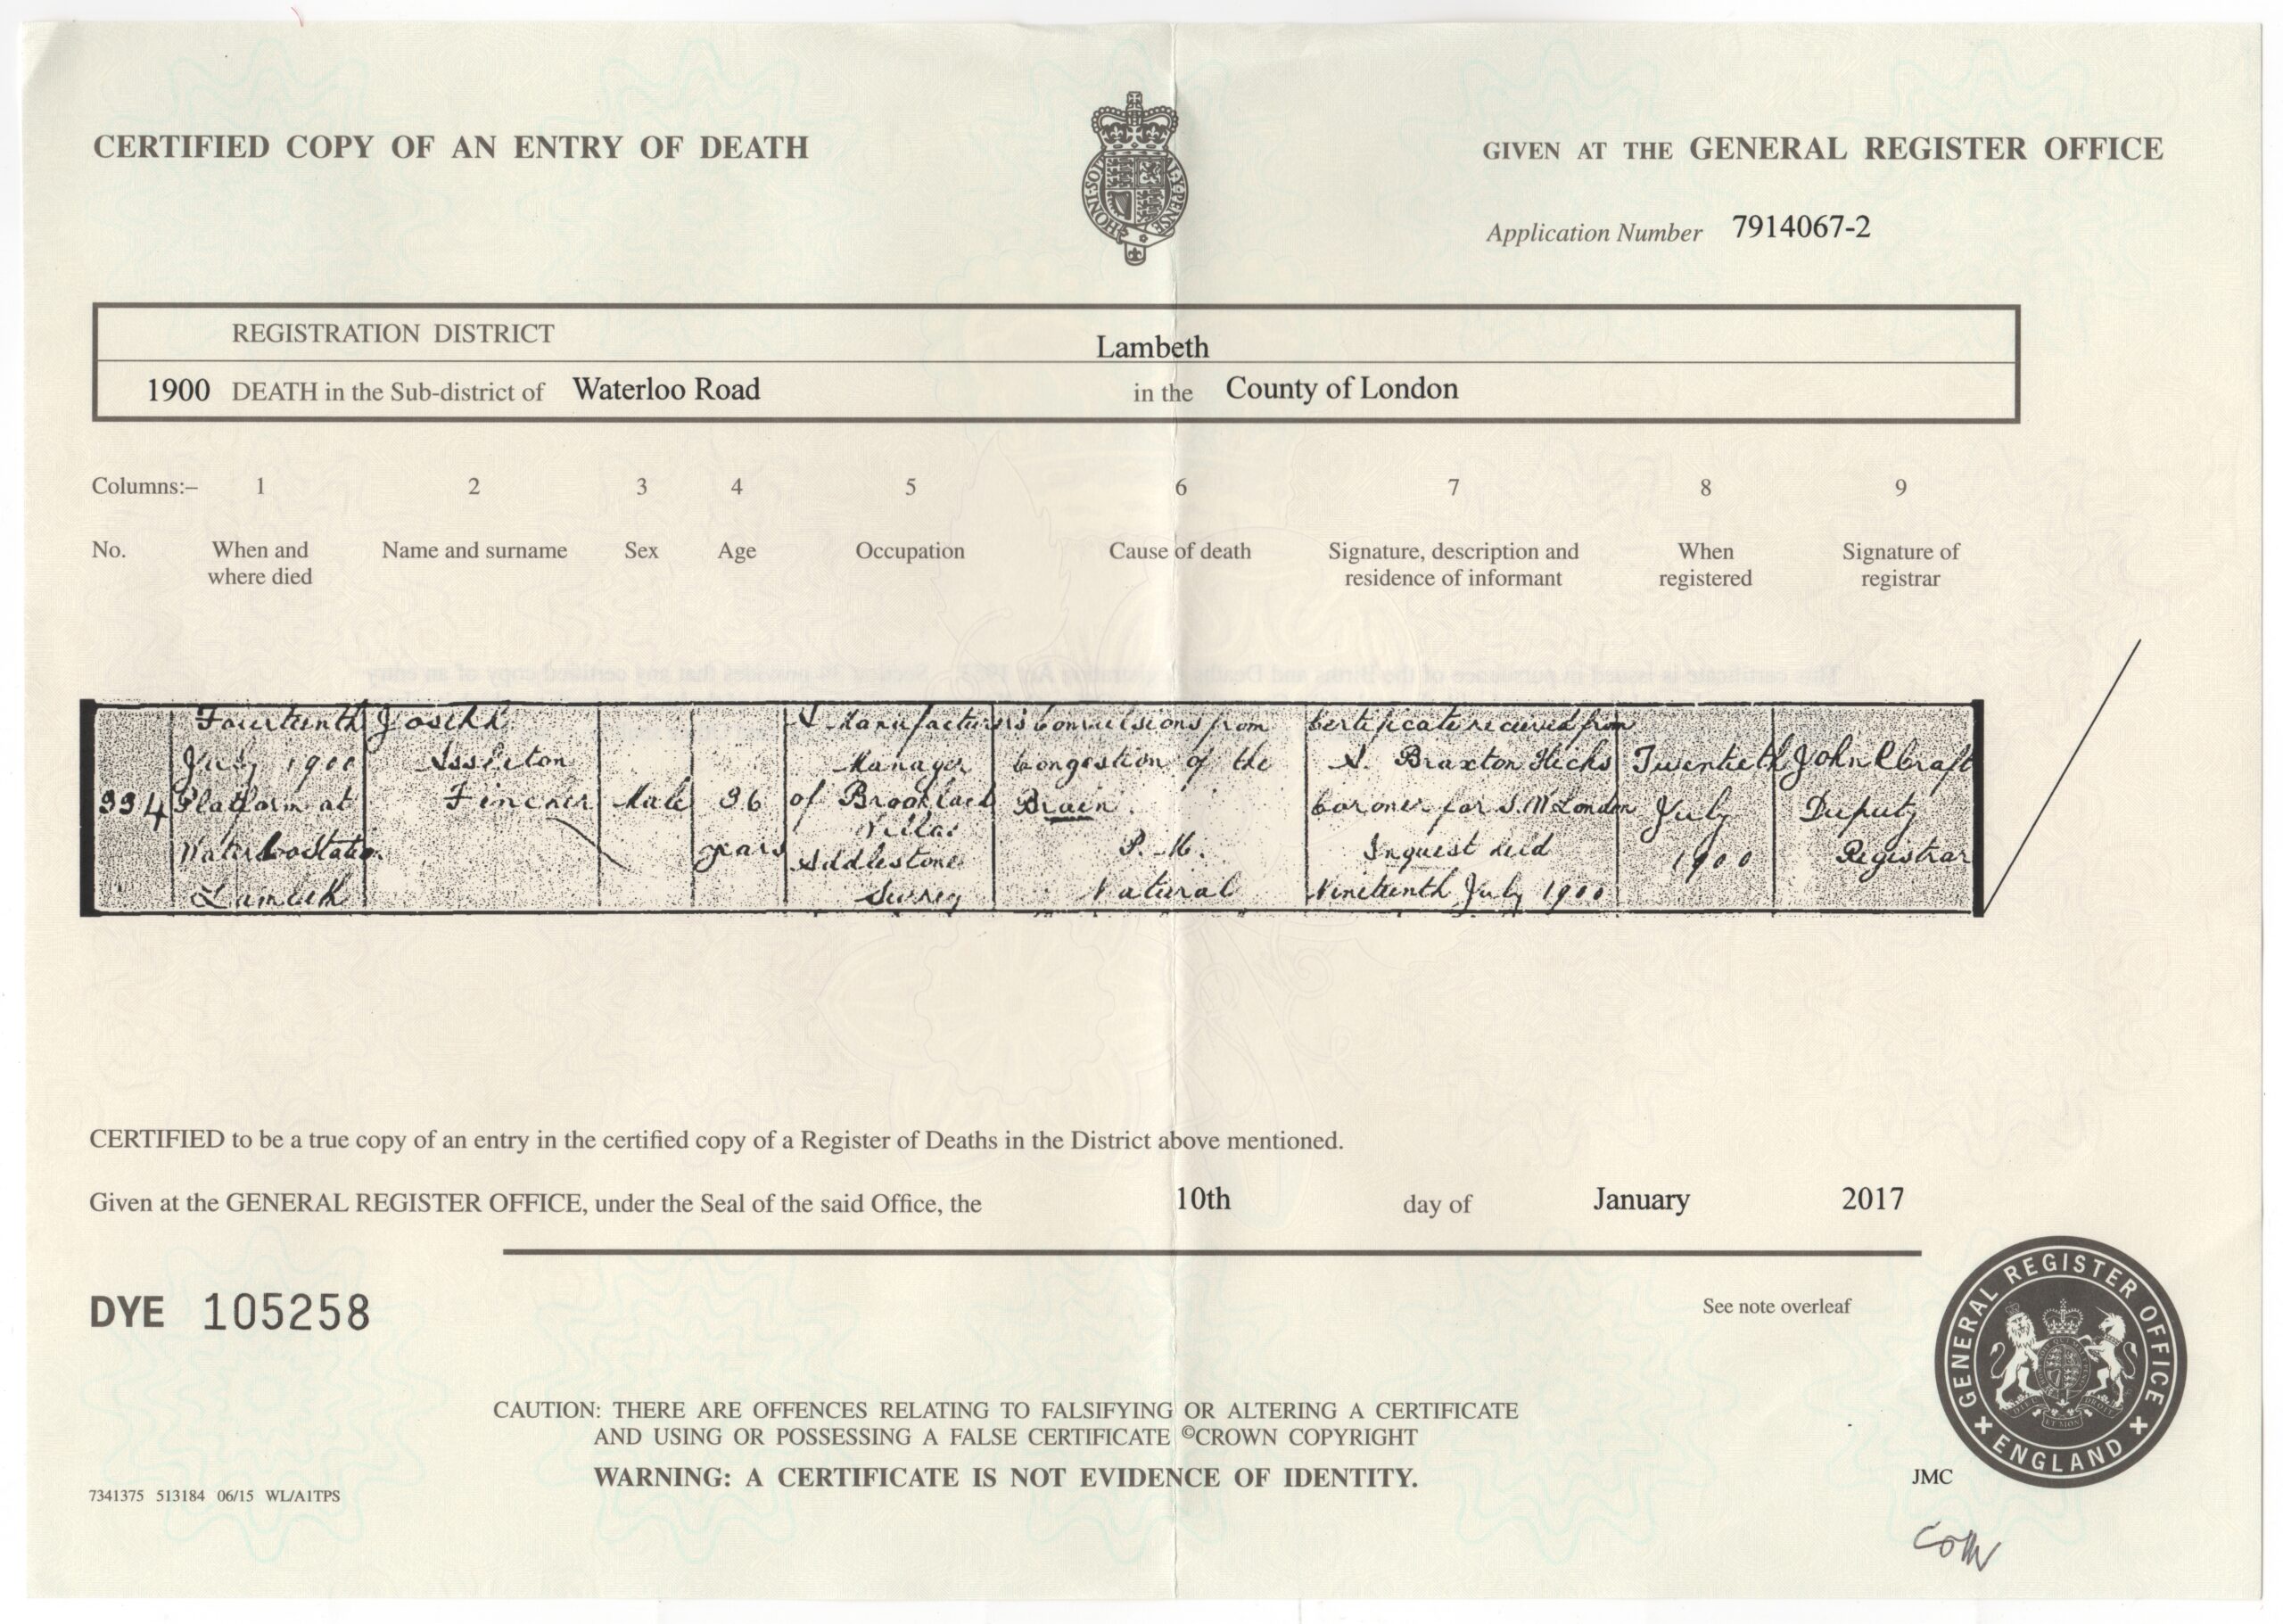 CERTIFIED COPY OF AN ENTRY OF DEATH
GIVEN AT THE GENERAL REGISTER OFFICE
HONI·SOIT·Q·MAL·Y·PENSE
Application Number 7914067-2
REGISTRATION DISTRICT Lambeth
1900 DEATH in the Sub-district of Waterloo Road in the County of London
Columns:– 1 2 3 4 5 6 7 8 9
No. When and where died Name and surname Sex Age Occupation Cause of death Signature, description and residence of informant When registered Signature of registrar
334
Fourteenth
July 1900
Platform at
Waterloo Station
Lambeth
Joseph
Fincher
Male
36
years
A Manufacturer's
Manager
of Brooklands
Villas
Addlestone
Surrey
Convulsions from
Congestion of the
Brain.
P.M.
Natural
Certificate received from
A. Braxton Hicks
Coroner for S.W London
Inquest held
Nineteenth July 1900
Twentieth
July
1900
John C Craft
Deputy
Registrar
CERTIFIED to be a true copy of an entry in the certified copy of a Register of Deaths in the District above mentioned.
Given at the GENERAL REGISTER OFFICE, under the Seal of the said Office, the 10th day of January 2017
DYE 105258
See note overleaf
GENERAL REGISTER OFFICE
ENGLAND
CAUTION: THERE ARE OFFENCES RELATING TO FALSIFYING OR ALTERING A CERTIFICATE
AND USING OR POSSESSING A FALSE CERTIFICATE ©CROWN COPYRIGHT
WARNING: A CERTIFICATE IS NOT EVIDENCE OF IDENTITY.
7341375 513184 06/15 WL/A1TPS
JMC